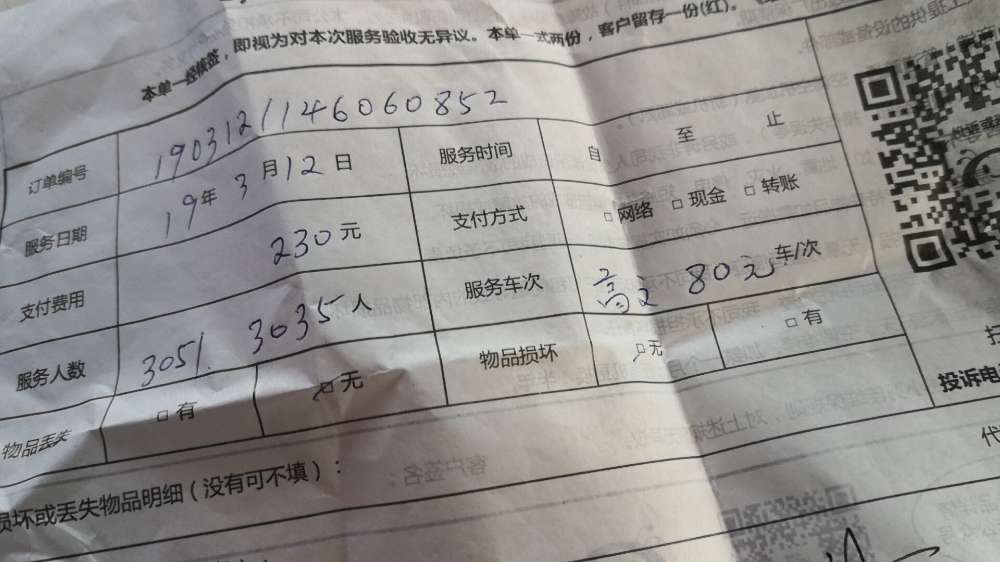 本单一经核签，即视为对本次服务验收无异议。本单一式两份，客户留存一份(红)。
订单编号 190312/1146060852
服务日期 19年 3月12日 服务时间 自 至 止
支付费用 230元 支付方式 □网络 □现金 □转账
服务人数 3051. 3035人 服务车次 80元车/次
物品丢失 □有 □无 物品损坏 □无 □有
损坏或丢失物品明细（没有可不填）：
投诉电